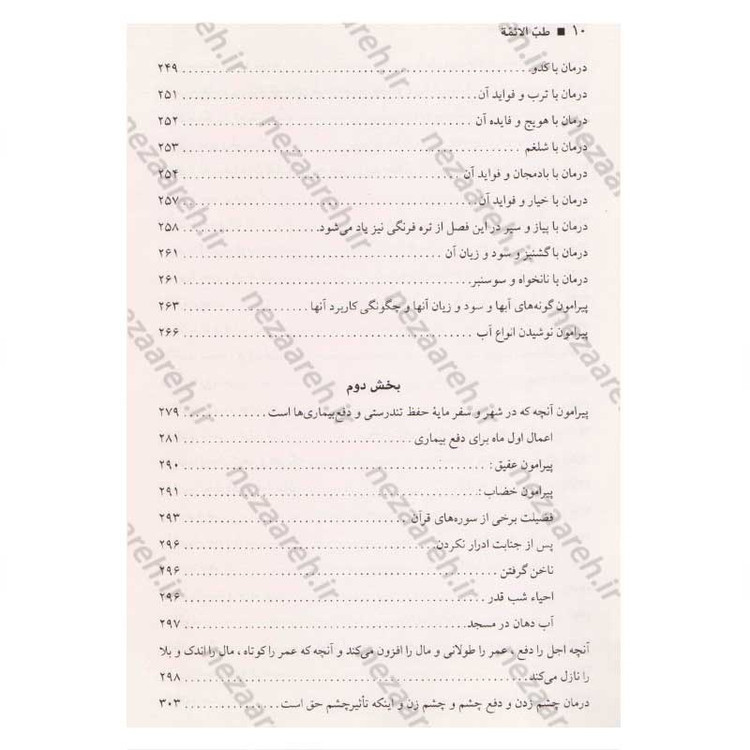 ۱۰ ■ طبّ الائمّة
درمان با کدو ........ ۲۴۹
درمان با ترب و فواید آن ........ ۲۵۱
درمان با هویج و فایده آن ........ ۲۵۲
درمان با شلغم ........ ۲۵۳
درمان با بادمجان و فواید آن ........ ۲۵۴
درمان با خیار و فواید آن ........ ۲۵۷
درمان با پیاز و سیر در این فصل از تره فرنگی نیز یاد می‌شود ........ ۲۵۸
درمان با گشنیز و سود و زیان آن ........ ۲۶۱
درمان با نانخواه و سوسنبر ........ ۲۶۱
پیرامون گونه‌های آبها و سود و زیان آنها و چگونگی کاربرد آنها ........ ۲۶۳
پیرامون نوشیدن انواع آب ........ ۲۶۶
بخش دوم
پیرامون آنچه که در شهر و سفر مایهٔ حفظ تندرستی و دفع بیماری‌ها است ........ ۲۷۹
اعمال اول ماه برای دفع بیماری ........ ۲۸۱
پیرامون عقیق: ........ ۲۹۰
پیرامون خضاب: ........ ۲۹۱
فضیلت برخی از سوره‌های قرآن ........ ۲۹۳
پس از جنابت ادرار نکردن ........ ۲۹۶
ناخن گرفتن ........ ۲۹۶
احیاء شب قدر ........ ۲۹۶
آب دهان در مسجد ........ ۲۹۷
آنچه اجل را دفع، عمر را طولانی و مال را افزون می‌کند و آنچه که عمر را کوتاه، مال را اندک و بلا
را نازل می‌کند ........ ۲۹۸
درمان چشم زدن و دفع چشم و چشم زن و اینکه تأثیر چشم حق است ........ ۳۰۳
nezaareh.ir